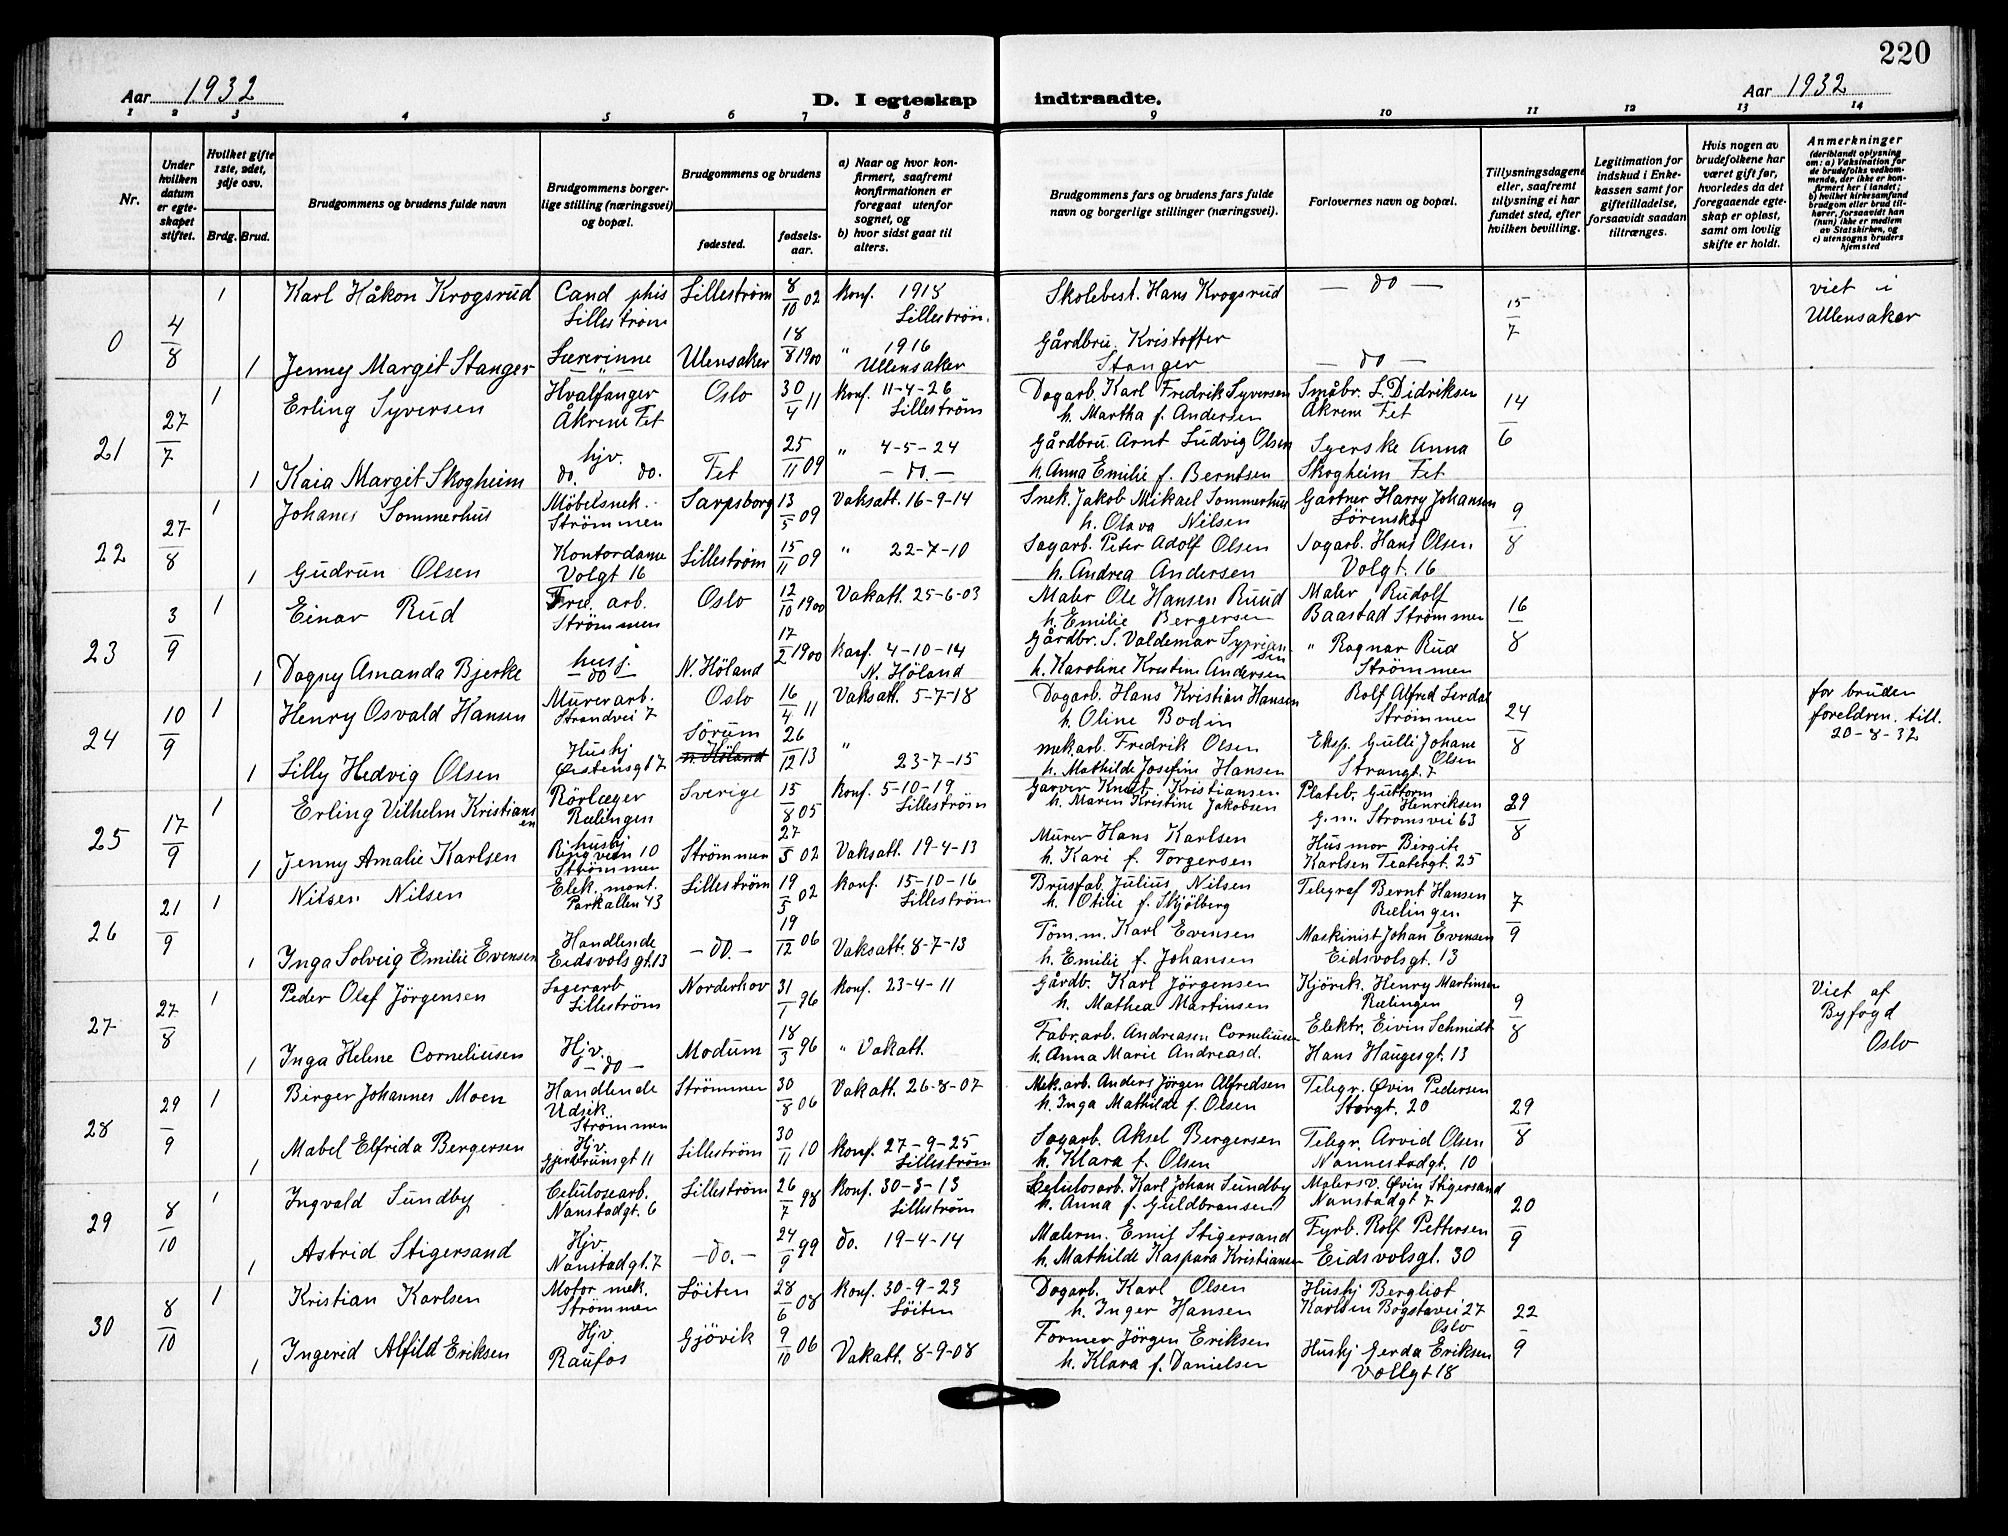 220
Aar 1932
D. I egteskap indtraadte.
Aar 1932
1 2 3 4 5 6 7 8 9 10 11 12 13 14
Nr.
Under hvilken datum er egteskapet stiftet.
Hvilket gifte 1ste, 2det, 3dje osv.
Brdg. Brud.
Brudgommens og brudens fulde navn
Brudgommens borgerlige stilling (næringsvei) og bopæl.
Brudgommens og brudens
fødested.
fødselsaar.
a) Naar og hvor konfirmert, saafremt konfirmationen er foregaat utenfor sognet, og
b) hvor sidst gaat til alters.
Brudgommens fars og brudens fars fulde navn og borgerlige stillinger (næringsvei).
Forlovernes navn og bopæl.
Tillysningsdagene eller, saafremt tillysning ei har fundet sted, efter hvilken bevilling.
Legitimation for indskud i Enkekassen samt for giftetilladelse, forsaavidt saadan tiltrænges.
Hvis nogen av brudefolkene har været gift før, hvorledes da det foregaaende egteskap er opløst, samt om lovlig skifte er holdt.
Anmerkninger
(deriblandt oplysning om: a) Vaksination for de brudefolks vedkommende, der ikke er konfirmert her i landet;
b) hvilket kirkesamfund brudgom eller brud tilhører, forsaavidt han (hun) ikke er medlem av Statskirken, og
c) utensogns bruders hjemsted
0 4/8 1 Karl Håkon Krogsrud Cand phis Lilleström Lilleström 8/10 02 Konf. 1918 Lilleström. Skolebest. Hans Krogsrud — do — 15/7 viet i Ullensaker
1 Jenney Margit Stanger Lærerinne — " — Ulensaker 18/8 1900 " 1916 Ullensaker Gårdbru. Kristoffer Stanger — do —
21 27/7 1 Erling Syversen Hvalfanger Åkrene Fet Oslo 30/4 11 Konf. 11-4-26 Lilleström Dagarb. Karl Fredrik Syversen h. Martha f. Andersen Småbr. L. Didriksen Åkrene Fet 14/6
1 Kaia Margit Skogheim hjv. do. do. Fet 25/11 09 " 4-5-24 — do. — Gårdbru. Arnt Ludvig Olsen h. Anna Emilie f. Berntsen Syerske Anna Skogheim Fet
22 27/8 1 Johanes Sommerhus Möbelsnek. Strömmen Sarpsborg 13/5 09 Vaksatt. 16-9-14 Snek. Jakob Mikael Sommerhus h. Olava Nilsen Gartner Harry Johansen Lörenskog 9/8
1 Gudrun Olsen Kontordame Volgt 16 Lilleström 15/11 09 " 22-7-10 Sagarb. Peter Adolf Olsen h. Andrea Andersen Sagarb. Hans Olsen Volgt. 16
23 3/9 1 Einar Rud arb. Strömmen Oslo 12/10 1900 Vakatt. 25-6-03 Maler Ole Hansen Ruud h. Emilie Bergersen Maler Rudolf Baastad Strømmen 16/8
1 Dagny Amanda Bjerke husj. — do — N. Höland 17/2 1900 Konf. 4-10-14 N. Höland Gårdbr. S. Valdemar Sypriansen h. Karoline Kristine Andersen " Ragnar Rud Strömmen
24 10/9 1 Henry Osvald Hansen Murerarb. Strandvei 7 Oslo 16/4 11 Vaksatt. 5-7-18 Dagarb. Hans Kristian Hansen h. Oline Bodin Rolf Alfred Lerdal Strömmen 24/8 for bruden foreldren. till. 20-8-32
1 Lilly Hedvig Olsen Hushj Ørstensgt 7 Sörum n. Höland 26/12 13 " 23-7-15 mek.arb. Fredrik Olsen h. Mathilde Josefine Hansen Eksp. Gulli Johane Olsen Strangt. 7
25 17/9 1 Erling Vilhelm Kristiansen Rörlæger Rælingen Sverige 15/8 05 Konf. 5-10-19 Lilleström Garver Knut Kristiansen h. Maren Kristine Jakobsen Plateb. Guttorm Henriksen g.m. Strömsvei 63 29/8
1 Jenny Amalie Karlsen hushj Ringveien 10 Strömmen Strömmen 27/5 02 Vaksatt. 19-4-13 Murer Hans Karlsen h. Kari f. Torgersen Husmor Birgit Karlsen Teatergt. 25
26 21/9 1 Nilsen Nilsen Elek. mont. Parkallen 43 Lilleström 19/5 02 Konf. 15-10-16 Lilleström Brusfab. Julius Nilsen h. Otilie f. Skjölberg Telegraf Bernt Hansen Rælingen 7/9
1 Inga Solveig Emilie Evensen Handlende Eidsvolsgt. 13 — do. — 19/12 06 Vaksatt. 8-7-13 Töm.m. Karl Evensen h. Emilie f. Johansen Maskinist Johan Evensen Eidsvolsgt. 13
27 27/8 1 Peder Olaf Jörgensen Lagerarb Lilleström Norderhov 31/1 96 Konf. 23-4-11 Gårdb. Karl Jörgensen h. Mathea Martinsen Kjörek. Henry Martinsen Rælingen 9/8 Viet af Byfogd Oslo
1 Inga Helene Corneliusen Hjv. — do — Modum 18/3 96 " Vakatt. Fabr.arb. Andreasen Corneliusen h. Anna Marie Andreasd. Elektr. Eivin Schmidt Hans Haugesgt. 13
28 29/9 1 Birger Johannes Moen Handlende Udsik Strömmen Strömmen 30/8 06 Vakatt. 26-8-07 Mek.arb. Anders Jörgen Alfredsen h. Inga Mathilde f. Olsen Telegr. Øvin Pedersen Storgt. 20 29/8
1 Mabel Elfrida Bergersen Hjv. Gjerdrumsgt 11 Lilleström 30/11 10 Konf. 27-9-25 Lilleström Sagarb. Aksel Bergersen h. Klara f. Olsen Telegr. Arvid Olsen Nannestadgt. 10
29 8/10 1 Ingvald Sundby Celulosearb. Nanstadgt. 6 Lilleström 26/7 98 Konf. 30-3-13 Lilleström Celulosarb. Karl Johan Sundby h. Anna f. Guldbransen Malersv. Øvin Stigersand Nanstadgt 7 20/9
1 Astrid Stigersand Hjv. Nanstadgt. 7 — do. — 24/9 99 do. 19-4-14 Malerm. Emil Stigersand h. Mathilde Kaspara Kristiansen Fyrb. Rolf Pettersen Eidsvolsgt. 30
30 8/10 1 Kristian Karlsen Motor mek. Strömmen Löiten 28/6 08 Konf. 30-9-23 Löiten Dagarb. Karl Olsen h. Inger Hansen Hushj Bergliot Karlsen Bogstavei 27 Oslo 22/9
1 Ingerid Alfild Eriksen Hjv. Raufos Gjövik 9/10 06 Vakatt. 8-9-08 Former Jörgen Eriksen h. Klara f. Danielsen Hushj Gerda Eriksen Vollgt 18